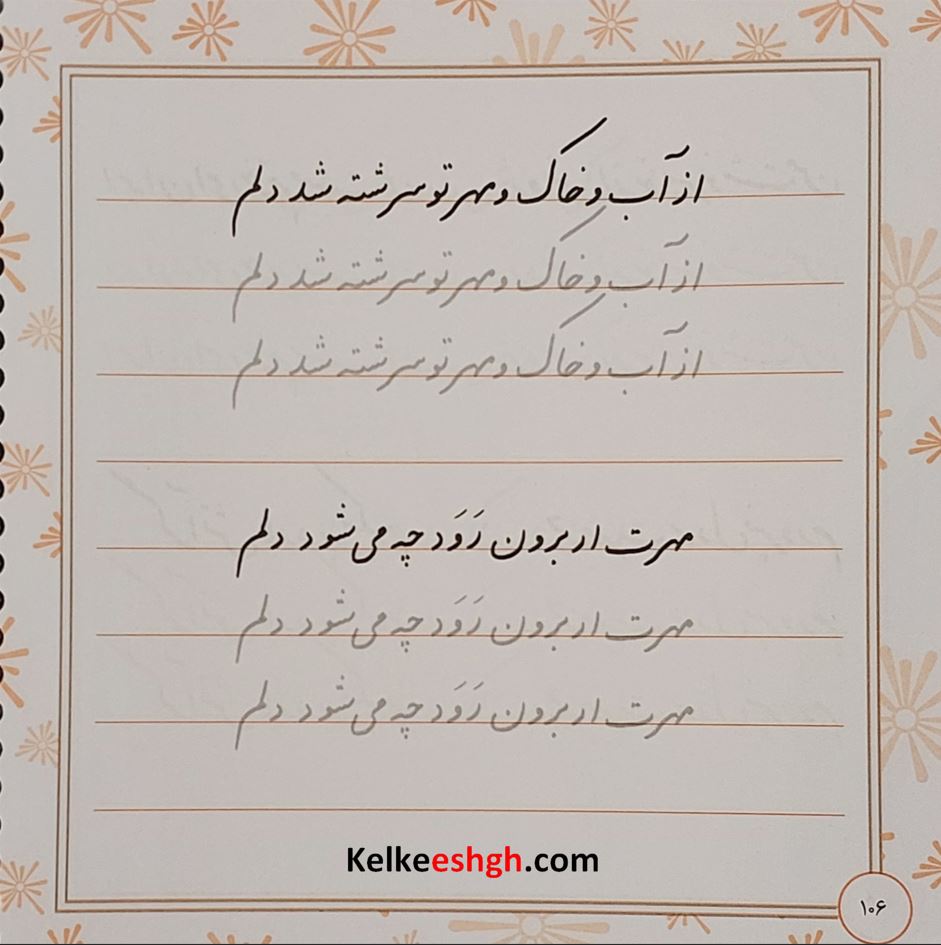 از آب و خاک و مهر تو سرشته شد دلم
از آب و خاک و مهر تو سرشته شد دلم
از آب و خاک و مهر تو سرشته شد دلم
مهرت ار برون رَوَد چه می‌شود دلم
مهرت ار برون رَوَد چه می‌شود دلم
مهرت ار برون رَوَد چه می‌شود دلم
Kelkeeshgh.com
۱۰۶